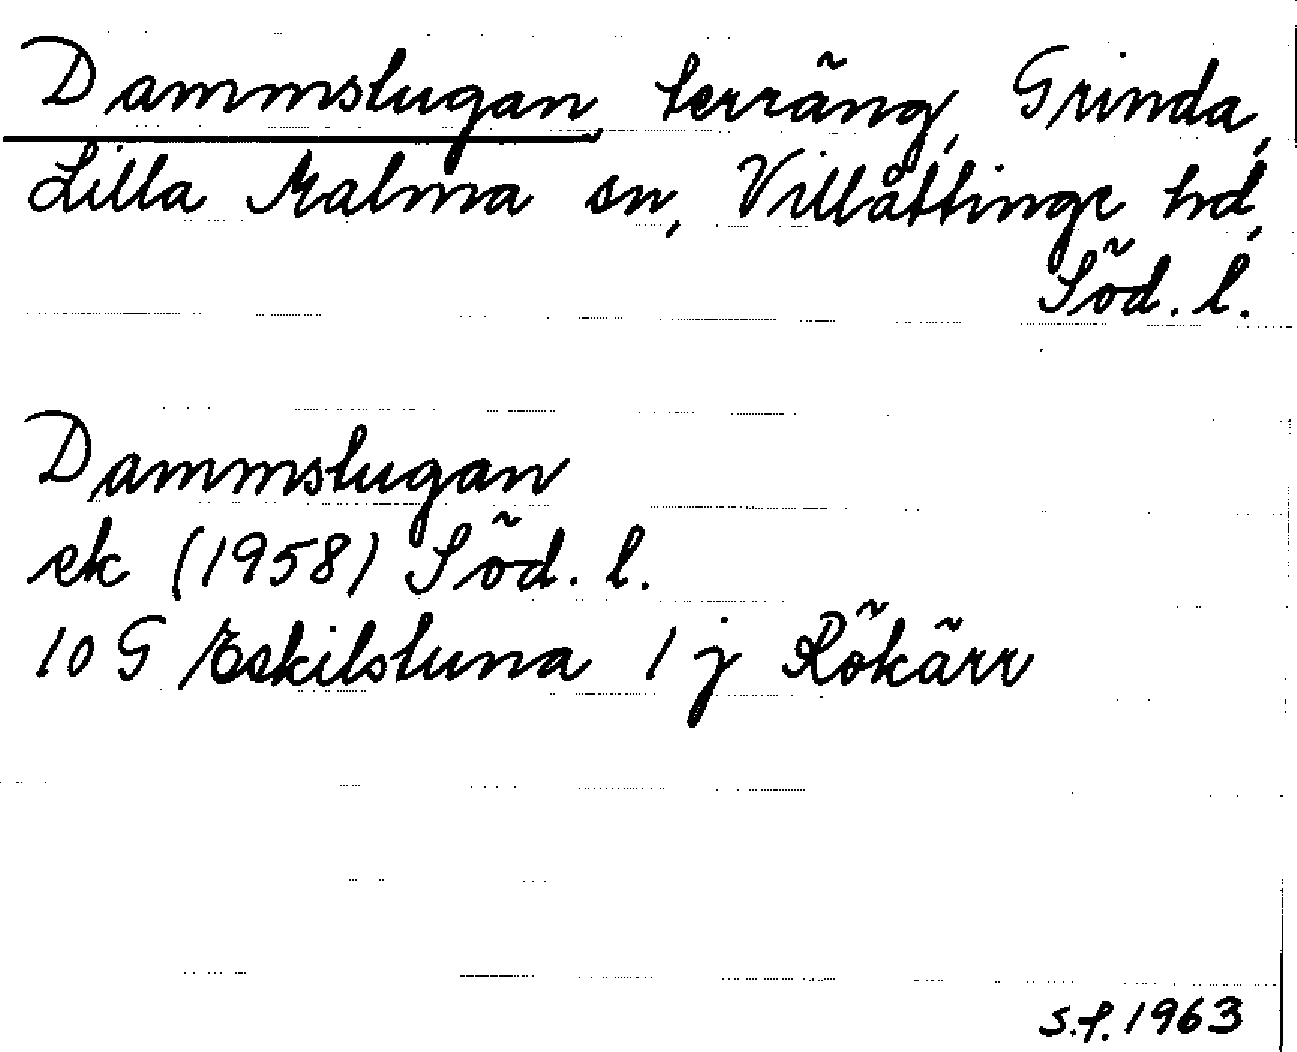 Dammstugan, terräng, Grinda,
Lilla Malma sn, Villåttinge hd,
Söd. l.
Dammstugan
ek (1958) Söd. l.
10 G Eskilstuna 1 j Rökärr
S.f. 1963